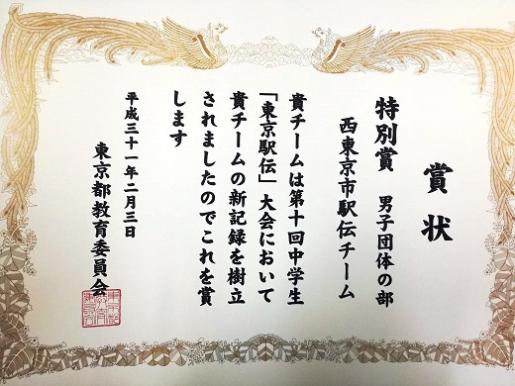 賞状
特別賞 男子団体の部
西東京市駅伝チーム
貴チームは第十回中学生
「東京駅伝」大会において
貴チームの新記録を樹立
されましたのでこれを賞
します
平成三十一年二月三日
東京都教育委員会